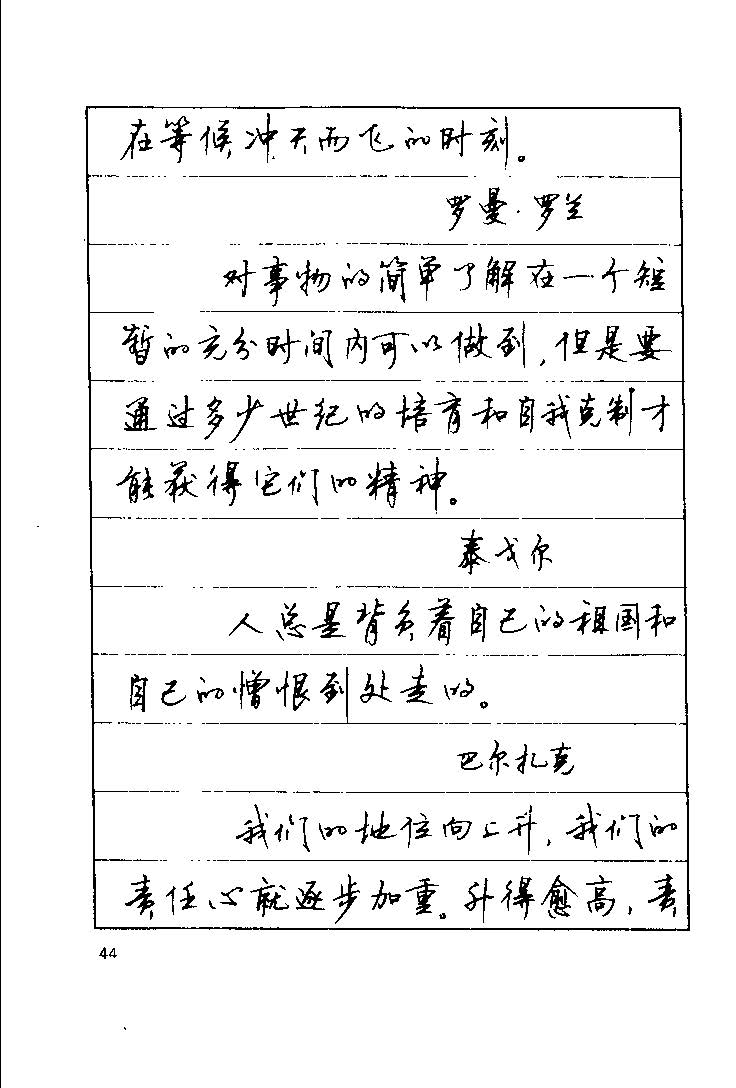 在等候冲天而飞的时刻。
罗曼·罗兰
对事物的简单了解在一个短
暂的充分时间内可以做到，但是要
通过多少世纪的培育和自我克制才
能获得它们的精神。
泰戈尔
人总是背负着自己的祖国和
自己的憎恨到处走的。
巴尔扎克
我们的地位向上升，我们的
责任心就逐步加重。升得愈高，责
44